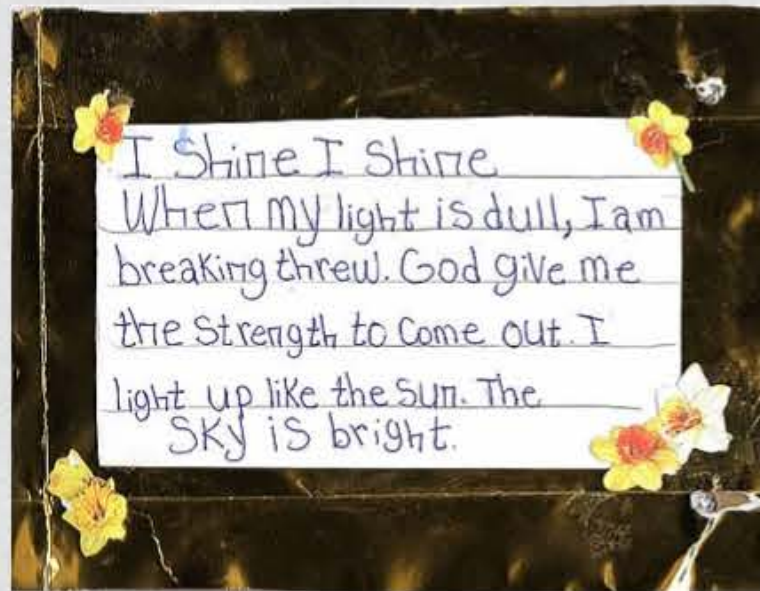 I Shine I Shine
When my light is dull, I am
breaking threw. God give me
the Strength to Come out. I
light up like the Sun. The
SKY is bright.